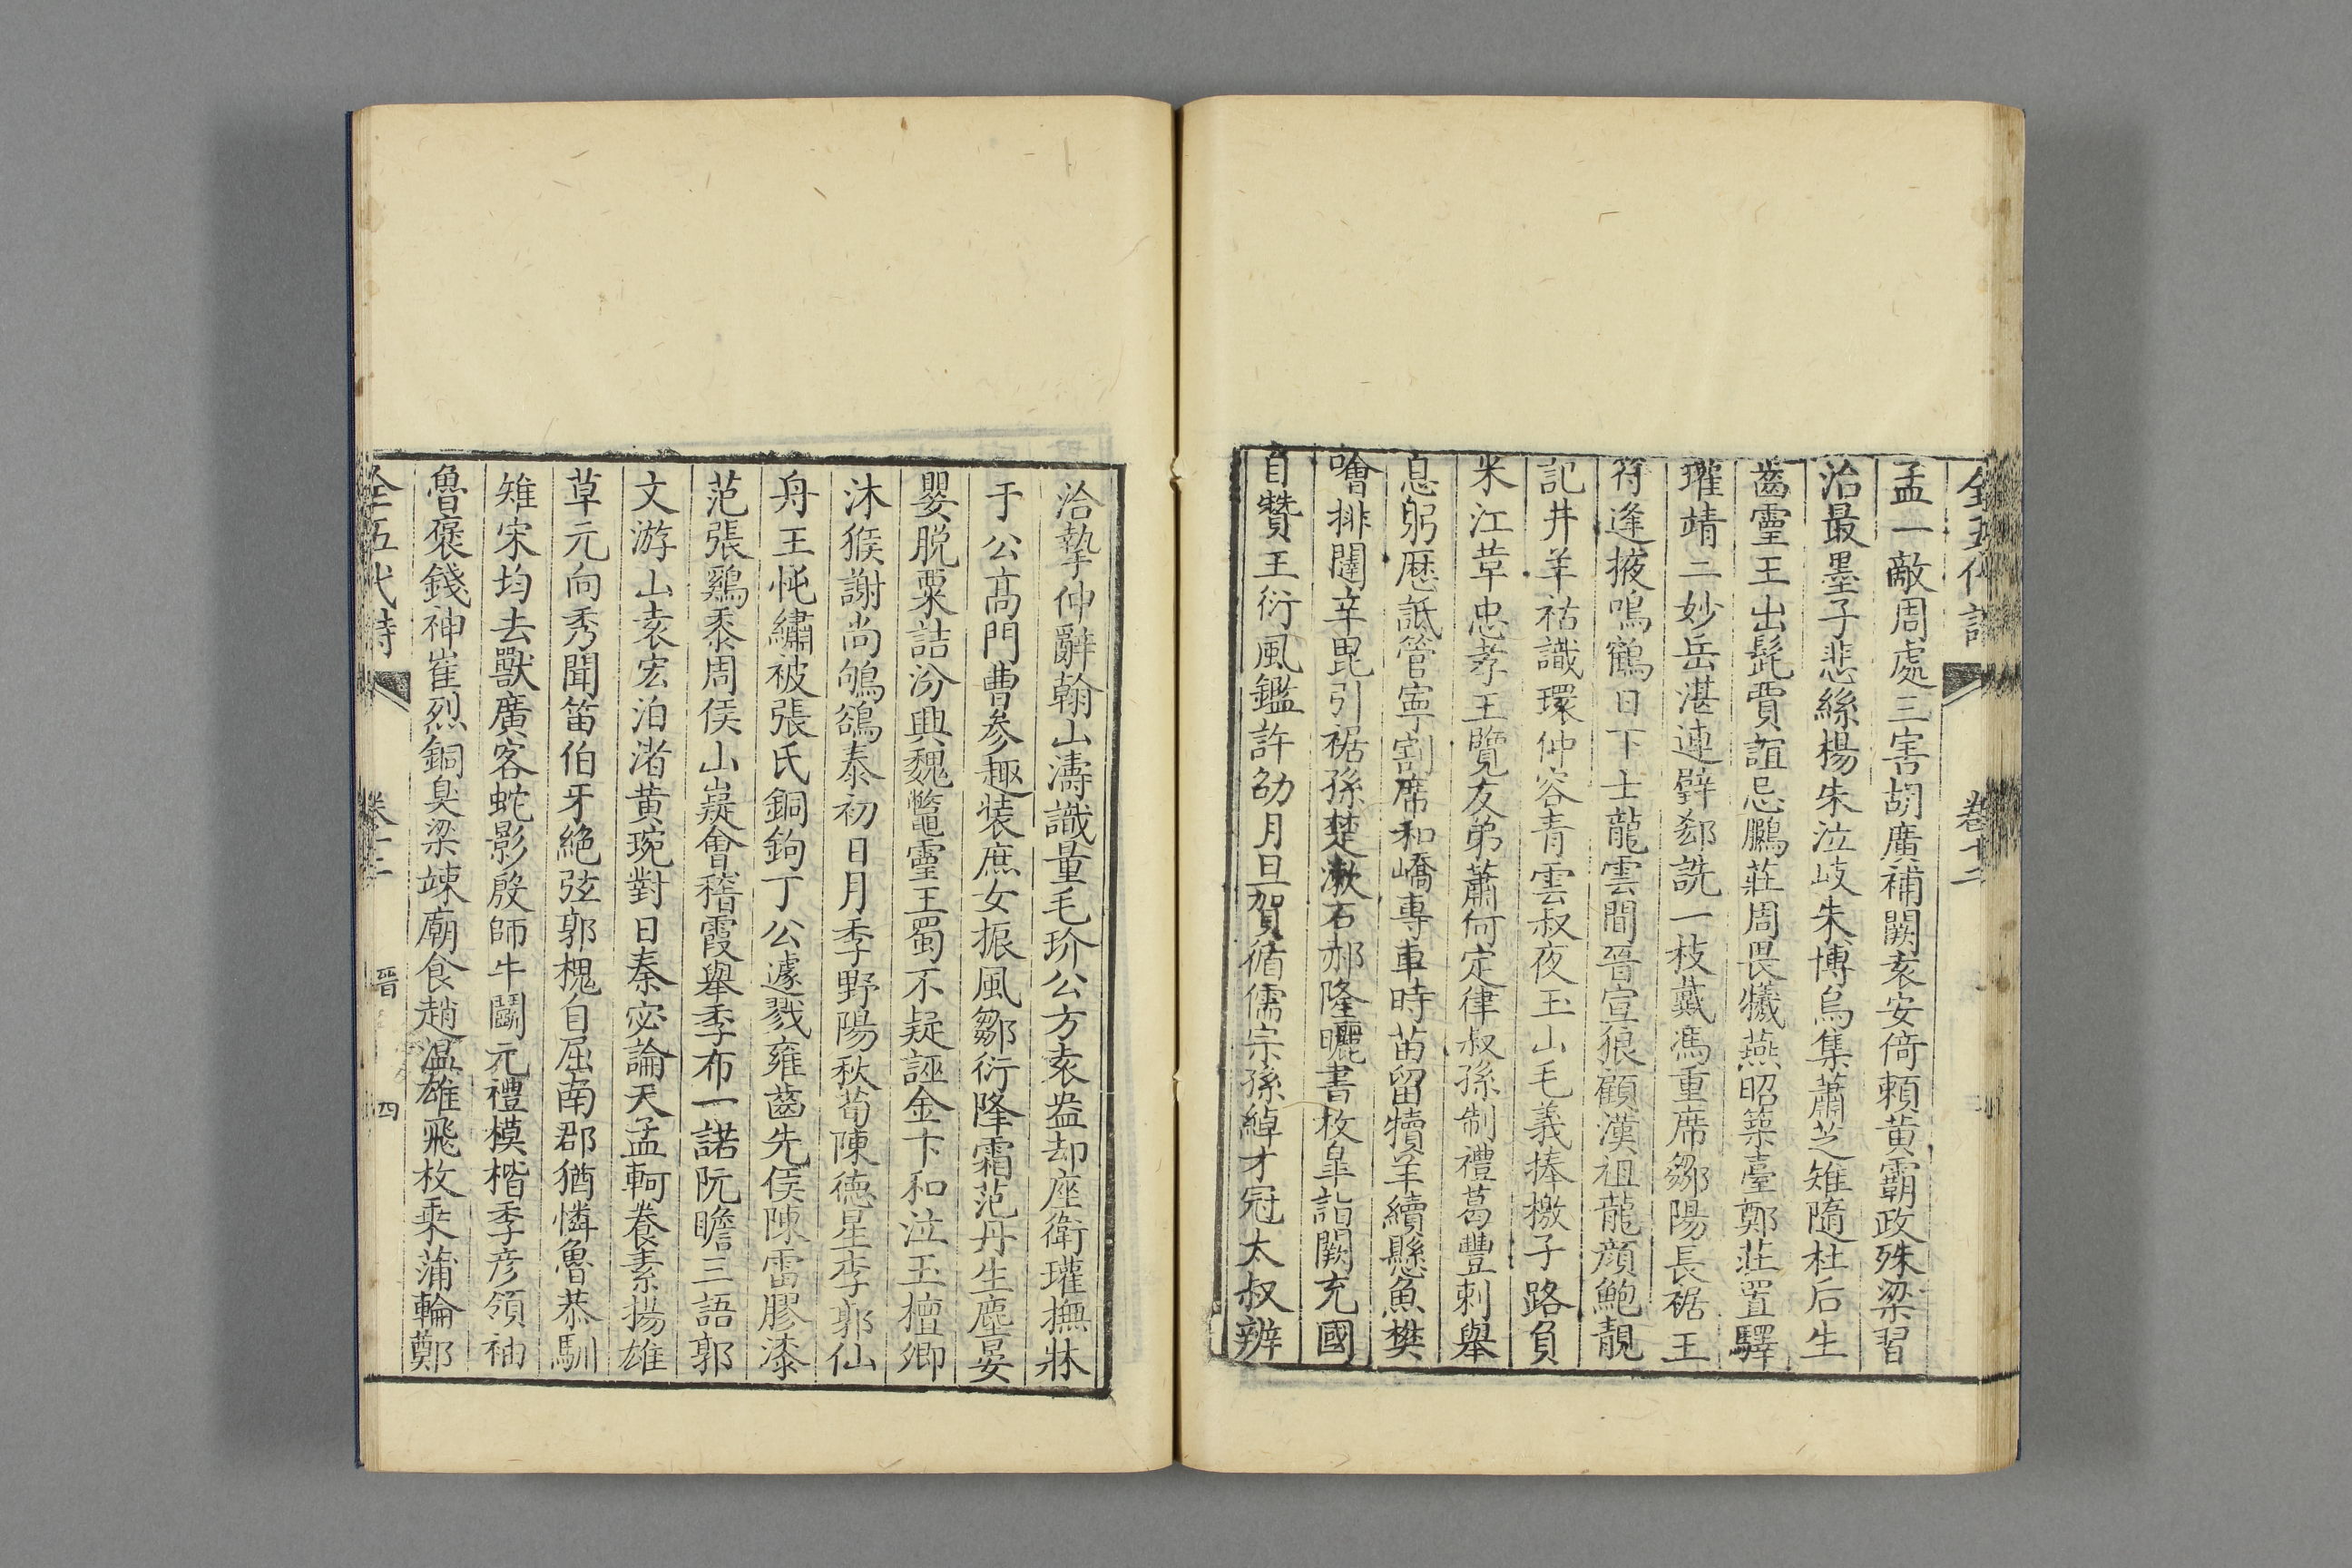 全五代詩 卷十二
孟一敵周處三害胡廣補闕袁安倚賴黃霸政殊梁習
治最墨子悲絲楊朱泣岐朱博烏集蕭芝雉隨杜后生
齒靈王出髭賈誼忌鵩莊周畏犧燕昭築臺鄭莊置驛
瓘靖二妙岳湛連璧郄詵一枝戴馮重席鄒陽長裾王
符逢掖鳴鶴日下士龍雲間晉宣狼顧漢祖龍顏鮑靚
記井羊祜識環仲容青雲叔夜玉山毛義捧檄子路負
米江革忠孝王覽友弟蕭何定律叔孫制禮葛豐刺舉
息躬歷詆管寧割席和嶠專車時苗留犢羊續懸魚樊
噲排闥辛毘引裾孫楚漱石郝隆曬書枚皐詣闕充國
自贊王衍風鑑許劭月旦賀循儒宗孫綽才冠太叔辨
洽摯仲辭翰山濤識量毛玠公方袁盎却座衛瓘撫牀
于公高門曹參趣裝庶女振風鄒衍降霜范丹生塵晏
嬰脱粟詰汾興魏鼈靈王蜀不疑誣金卞和泣玉檀卿
沐猴謝尚鴝鵒泰初日月季野陽秋荀陳德星李郭仙
舟王忳繡被張氏銅鉤丁公遽戮雍齒先侯陳雷膠漆
范張鷄黍周侯山嶷會稽霞舉季布一諾阮瞻三語郭
文游山袁宏泊渚黃琬對日秦宓論天孟軻養素揚雄
草元向秀聞笛伯牙絶弦郭槐自屈南郡猶憐魯恭馴
雉宋均去獸廣客蛇影殷師牛鬭元禮模楷季彦領袖
魯褒錢神崔烈銅臭梁竦廟食趙温雄飛枚乘蒲輪鄭
全五代詩 卷十二 晉 四